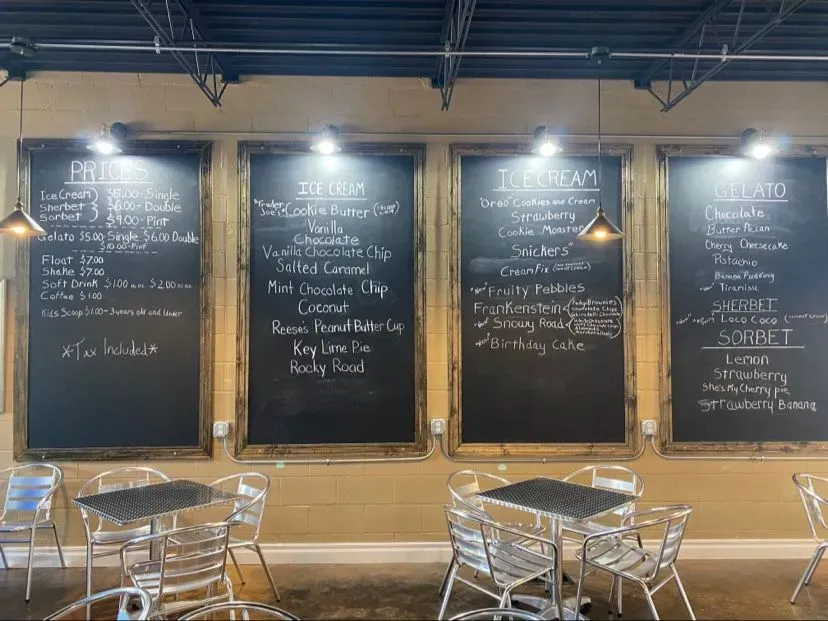 PRICES
Ice Cream } $5.00-Single
Sherbet } $6.00-Double
Sorbet } $9.00-Pint
Gelato $5.00 Single $6.00 Double
$10.00-Pint
Float $7.00
Shake $7.00
Soft Drink $1.00 $2.00
Coffee $1.00
Kids Scoop $1.00-3 years old and Under
*Tax Included*
ICE CREAM
"Trader Joe's" Cookie Butter
Vanilla
Chocolate
Vanilla Chocolate Chip
Salted Caramel
Mint Chocolate Chip
Coconut
Reeses Peanut Butter Cup
Key Lime Pie
Rocky Road
ICE CREAM
"Oreo" Cookies and Cream
Strawberry
Cookie Monster
Snickers"
Cream Fix
"New" Fruity Pebbles
Frankenstein (Fudge Brownies Chocolate Chips
"New" Snowy Road
"New" Birthday Cake
GELATO
Chocolate
Butter Pecan
Cherry Cheesecake
Pistachio
Banana Pudding
"New" Tiramisu
SHERBET
"New" Loco Coco
SORBET
Lemon
Strawberry
She's My Cherry pie
Strawberry Banana